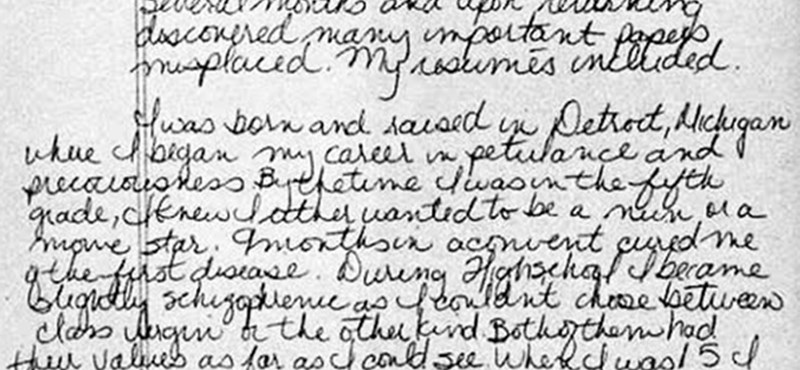 several months and upon returning
discovered many important papers
misplaced. My resumés included.
I was born and raised in Detroit, Michigan
where I began my career in petulance and
precociousness By the time I was in the fifth
grade, I knew I either wanted to be a nun or a
movie star. 9 months in a convent cured me
of the first disease. During Highschool I became
slightly schizophrenic as I couldn't choose between
class virgin or the other kind Both of them had
their values as far as I could see. When I was 15 I